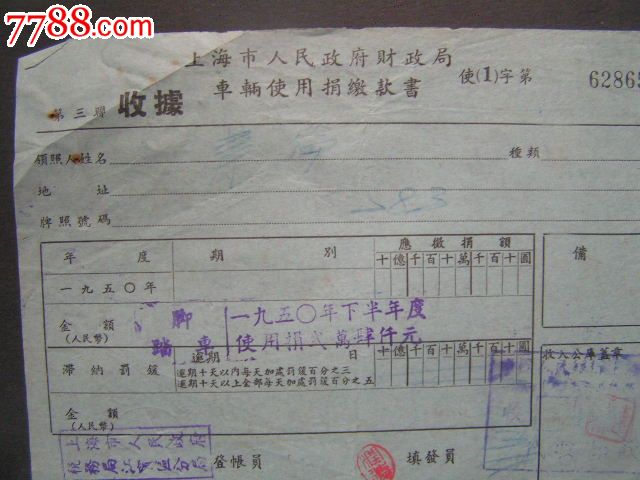 7788.com
上海市人民政府財政局
車輛使用捐繳款書
使(1)字第 6286
第三聯 收據
領照人姓名 種類
地址
牌照號碼
年度 期別 應徵捐額 備
十億千百十萬千百十圓
一九五〇年
金額 (人民幣)
腳踏車 一九五〇年下半年度
使用捐弍萬肆仟元
逾期 日 十億千百十萬千百十圓 收入公庫蓋章
滯納罰鍰 逾期十天以內每天加處罰鍰百分之三
逾期十天以上全部每天加處罰鍰百分之五
金額 (人民幣)
上海市人民政府
稅務局江寧區分局
登帳員 填發員